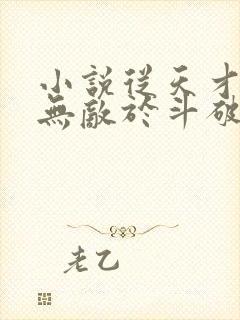 小說從天才
無敵於斗破
老乙